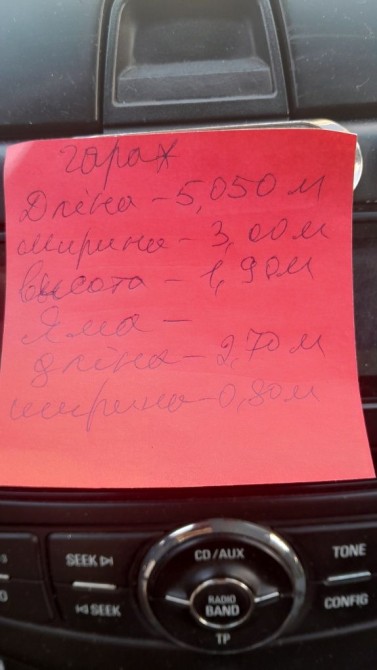 гараж
Длина - 5,050 м
ширина - 3,00 м
высота - 1,90 м
Яма -
длина - 2,70 м
ширина - 0,80 м
SEEK CD/AUX TONE
RADIO
BAND
SEEK CONFIG
TP